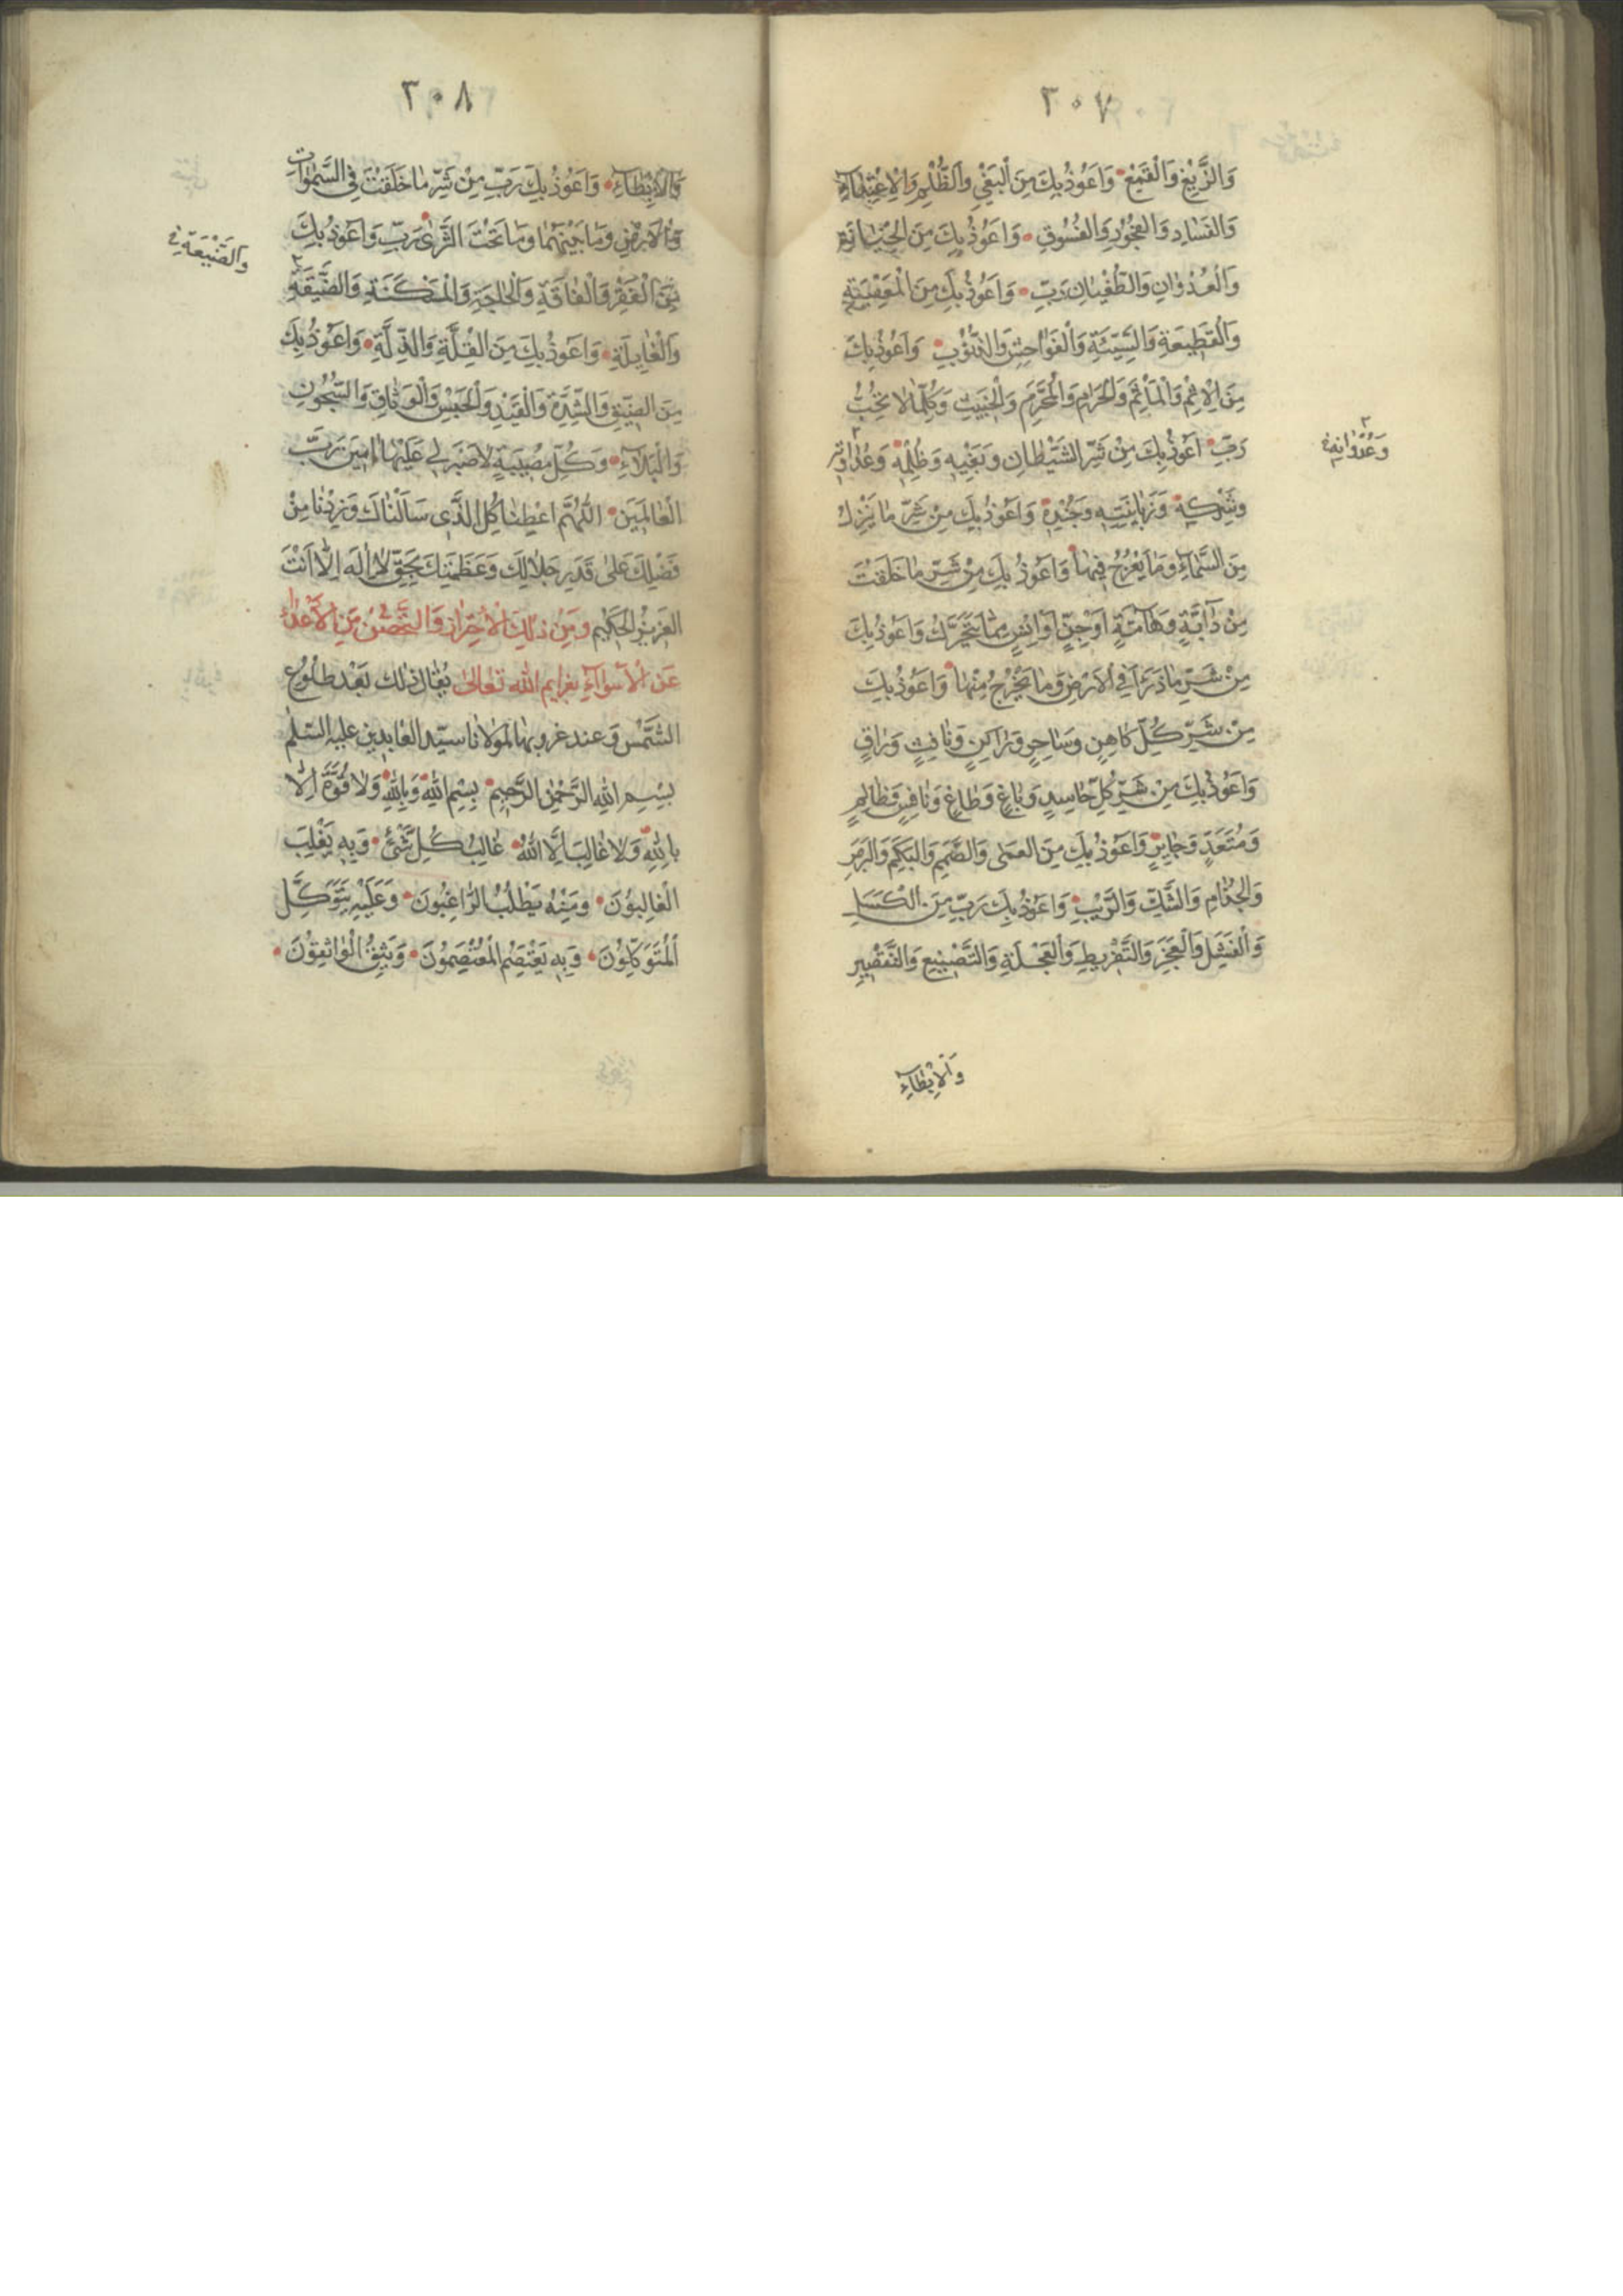 ٣٠٧
وَالزَّيْغِ وَالْقَمْعِ وَاَعُوذُ بِكَ مِنَ الْبَغْيِ وَالظُّلْمِ وَالْاِعْتِدَآءِ
وَالْفَسَادِ وَالْفُجُورِ وَالْفُسُوقِ وَاَعُوذُ بِكَ مِنَ الْخِيَانَةِ
وَالْعُدْوَانِ وَالطُّغْيَانِ رَبِّ وَاَعُوذُ بِكَ مِنَ الْمَعْصِيَةِ
وَالْقَطِيعَةِ وَالسَّيِّئَةِ وَالْفَوَاحِشِ وَالذُّنُوبِ وَاَعُوذُ بِكَ
مِنَ الْاِثْمِ وَالْمَأْثَمِ وَالْحَرَامِ وَالْمُحَرَّمِ وَالْخَبِيثِ وَكُلِّمَا لَا تُحِبُّ
رَبِّ اَعُوذُ بِكَ مِنْ شَرِّ الشَّيْطَانِ وَبَغْيِهِ وَظُلْمِهِ وَعَدَاوَتِهِ
وَعُدْوَانِهِ
وَشِرْكِهِ وَزَبَانِيَتِهِ وَجُنْدِهِ وَاَعُوذُ بِكَ مِنْ شَرِّ مَا يَنْزِلُ
مِنَ السَّمَآءِ وَمَا يَعْرُجُ فِيهَا وَاَعُوذُ بِكَ مِنْ شَرِّ مَا خَلَقْتَ
مِنْ دَآبَّةٍ وَهَآمَّةٍ اَوْ جِنٍّ اَوْ اِنْسٍ مِمَّا يَتَحَرَّكُ وَاَعُوذُ بِكَ
مِنْ شَرِّ مَا ذَرَءَ فِي الْاَرْضِ وَمَا يَخْرُجُ مِنْهَا وَاَعُوذُ بِكَ
مِنْ شَرِّ كُلِّ كَاهِنٍ وَسَاحِرٍ وَرَاكِنٍ وَنَافِثٍ وَرَاقٍ
وَاَعُوذُ بِكَ مِنْ شَرِّ كُلِّ حَاسِدٍ وَبَاغٍ وَطَاغٍ وَنَافِسٍ وَظَالِمٍ
وَمُتَعَدٍّ وَجَايِرٍ وَاَعُوذُ بِكَ مِنَ الْعَمَى وَالصَّمَمِ وَالْبَكَمِ وَالْبَرَصِ
وَالْجُذَامِ وَالشَّكِّ وَالرَّيْبِ وَاَعُوذُ بِكَ رَبِّ مِنَ الْكَسَلِ
وَالْفَشَلِ وَالْعَجْزِ وَالتَّفْرِيطِ وَالْعَجَلَةِ وَالتَّضْيِيعِ وَالتَّقْصِيرِ
وَالْاِبْطَآءِ
٣٠٨
وَالْاِبْطَآءِ وَاَعُوذُ بِكَ رَبِّ مِنْ شَرِّ مَا خَلَقْتَ فِي السَّمٰوَاتِ
وَالْاَرْضِ وَمَا بَيْنَهُمَا وَمَا تَحْتَ الثَّرٰى رَبِّ وَاَعُوذُ بِكَ
وَالضَّيْعَةِ
مِنَ الْفَقْرِ وَالْفَاقَةِ وَالْحَاجَةِ وَالْمَسْكَنَةِ وَالضِّيقَةِ
وَالْغَايِلَةِ وَاَعُوذُ بِكَ مِنَ الْقِلَّةِ وَالذِّلَّةِ وَاَعُوذُ بِكَ
مِنَ الضِّيقِ وَالشِّدَّةِ وَالْقَيْدِ وَالْحَبْسِ وَالْوَثَاقِ وَالسُّجُونِ
وَالْبَلَآءِ وَكُلِّ مُصِيبَةٍ لَا صَبْرَ لِي عَلَيْهَا اٰمِينَ رَبَّ
الْعَالَمِينَ اَللّٰهُمَّ اَعْطِنَا كُلَّ الَّذِي سَاَلْنَاكَ وَزِدْنَا مِنْ
فَضْلِكَ عَلٰى قَدْرِ جَلَالِكَ وَعَظَمَتِكَ بِحَقِّ لَا اِلٰهَ اِلَّا اَنْتَ
الْعَزِيزُ الْحَكِيمُ وَمِنْ ذٰلِكَ الْاِحْتِرَازُ وَالتَّحَصُّنُ مِنَ الْاَعْدَاءِ
عَنِ الْاَسْوَآءِ بعزايم الله تعالى يُقال ذلك بَعْدَ طُلُوعِ
الشَّمْسِ وَعند غروبها لمولانا سيد العابدين عليه السّلم
بِسْمِ اللهِ الرَّحْمٰنِ الرَّحِيمِ بِسْمِ اللهِ وَبِاللهِ وَلَا قُوَّةَ اِلَّا
بِاللهِ وَلَا غَالِبَ اِلَّا اللهُ غَالِبُ كُلِّ شَيْءٍ وَبِهِ يَغْلِبُ
الْغَالِبُونَ وَمِنْهُ يَطْلُبُ الرَّاغِبُونَ وَعَلَيْهِ يَتَوَكَّلُ
الْمُتَوَكِّلُونَ وَبِهِ يَعْتَصِمُ الْمُعْتَصِمُونَ وَيَثِقُ الْوَاثِقُونَ